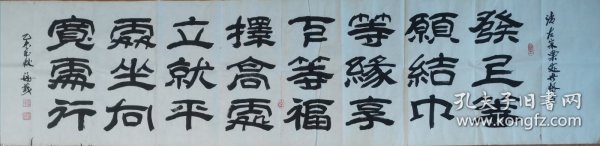 清左宗棠
發上等
願結中
等緣享
下等福
擇高處
立就平
處坐向
寬處行
孔夫子旧书网
www.kongfz.com